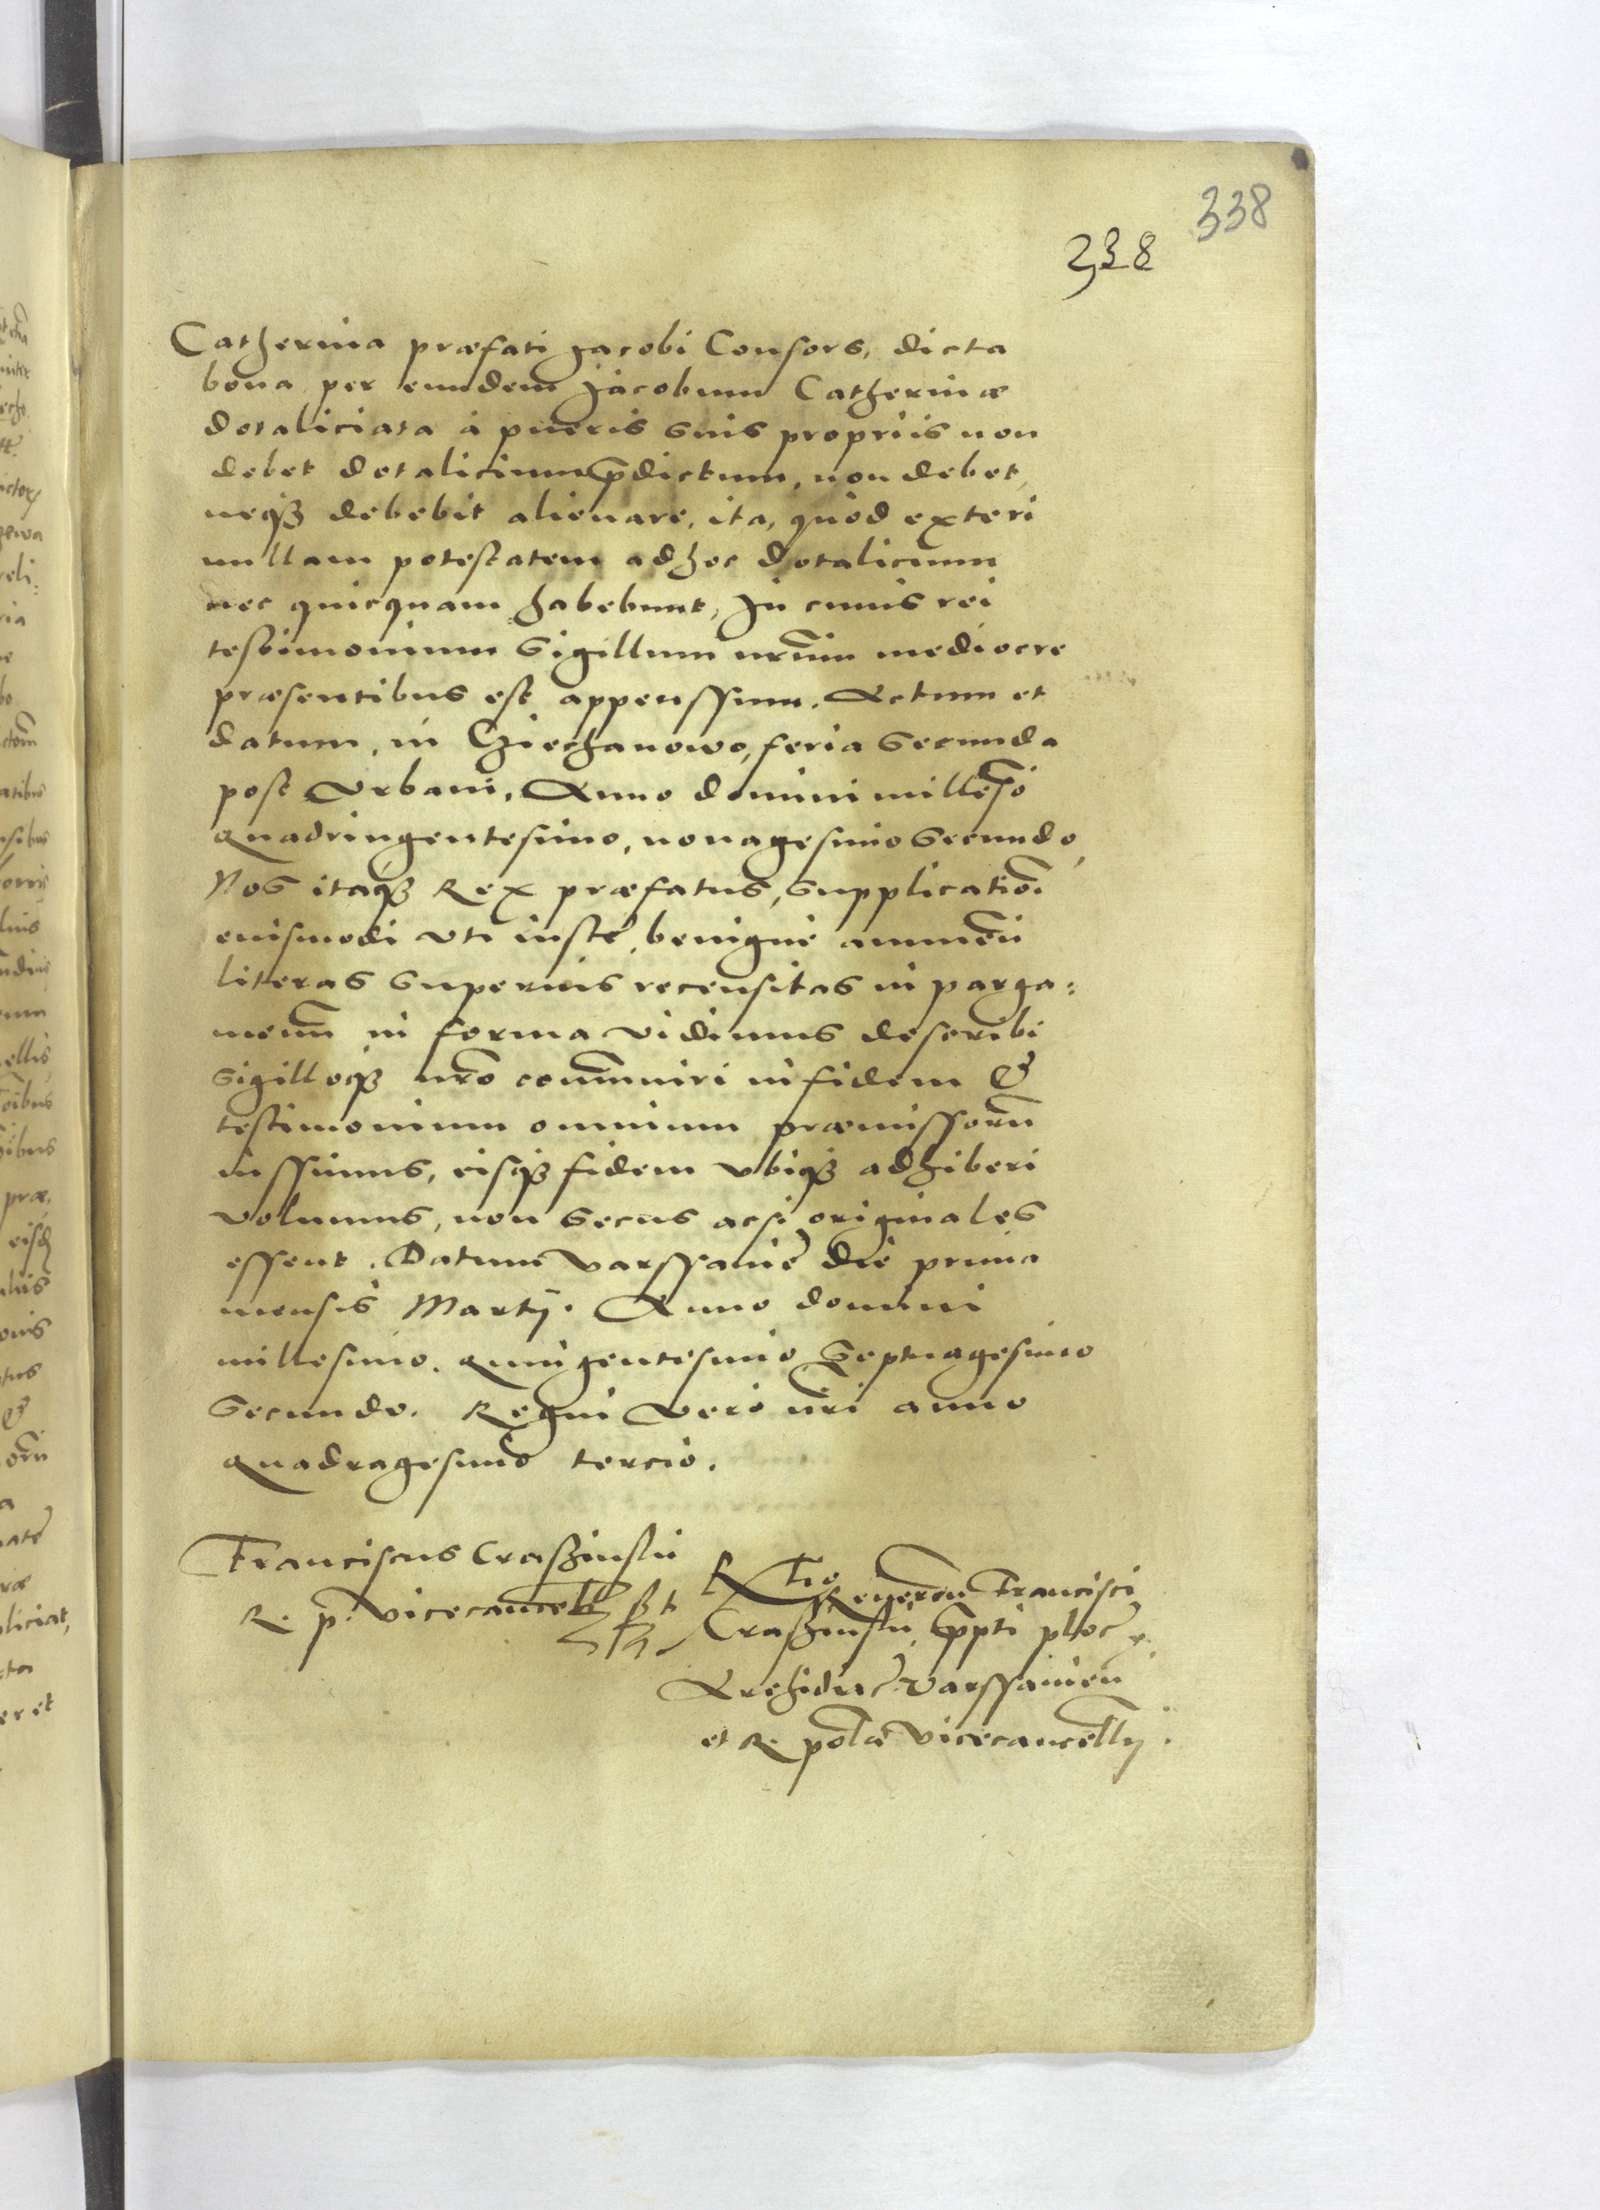 338
338
Catherina præfati Jacobi Consors, dicta
bona per eundem Jacobum Catherinæ
dotaliciata á pueris suis propriis non
debet dotalicium p̄dictum, non debet,
neqȝ debebit alienare, ita, quòd exteri
nullam potestatem ad hoc dotalicium
nec quicquam habebunt, In cuius rei
testimonium Sigillum nr̄um mediocre
præsentibus est appenssum. Actum et
datum, in Cziechanowo, feria Secunda
post Vrbani, Anno domini milles̄io
quadringentesimo, nonagesimo Secundo,
Nos itaqȝ Rex præfatus, supplicatiōi
euismodi vti iustę, benignè annueñ
literas superius recensitas in parga:
menū in forma vidimus describi
sigilloqȝ nr̄o com̄muniri in fidem &
testimonium omnium præmissorū
iussimus, eisqȝ fidem vbiqȝ adhiberi
volumus, non secus acsi originales
essent. Datum Varssauię die prima
mensis Martij. Anno domini
millesimo. quingentesimo Septuagesimo
Secundo. Regni vero nr̄i anno
quadragesimo tercio.
Franciscus Crasȝinski
R. p. vicecancell sst
R̄tio Reuereñ Francisci
Crasȝinski, p̄pti ploc
Archidiac Varssauień
et R. polæ vicecancellij.